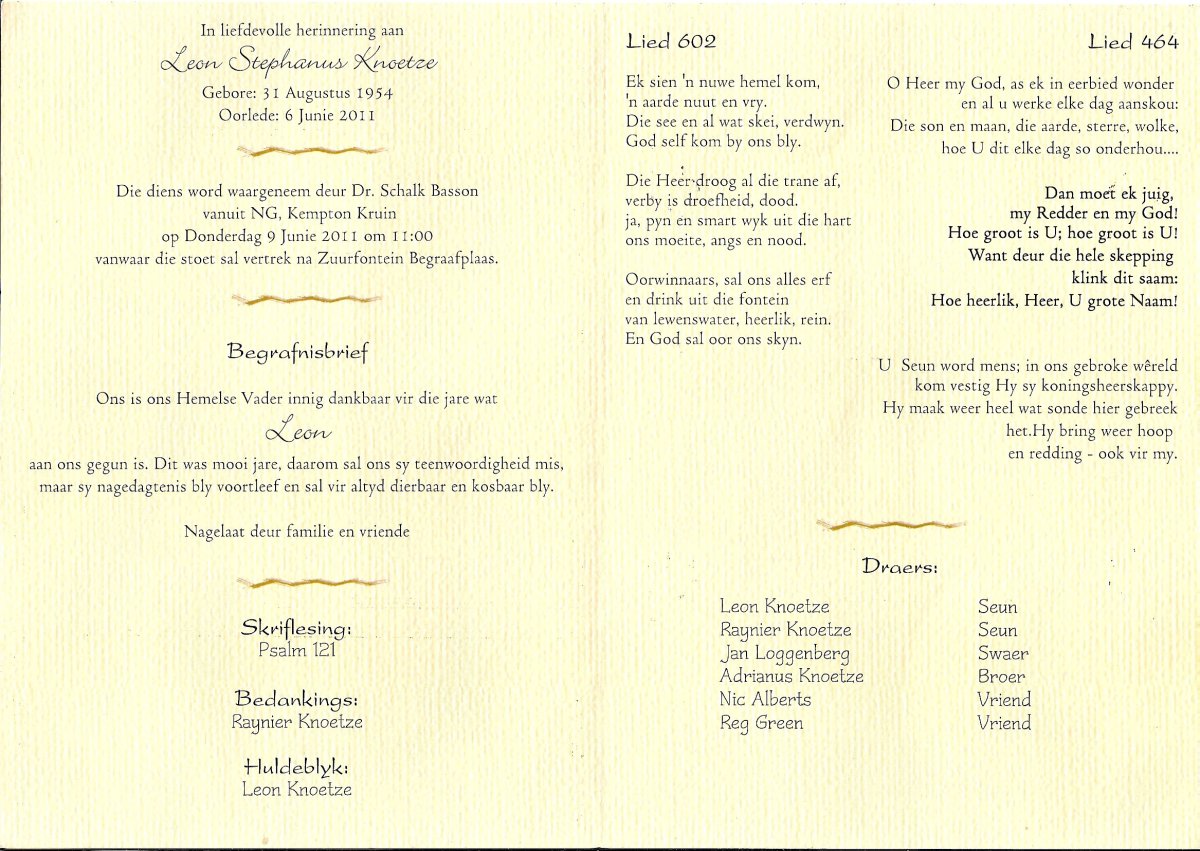 In liefdevolle herinnering aan
Leon Stephanus Knoetze
Gebore: 31 Augustus 1954
Oorlede: 6 Junie 2011
Die diens word waargeneem deur Dr. Schalk Basson
vanuit NG, Kempton Kruin
op Donderdag 9 Junie 2011 om 11:00
vanwaar die stoet sal vertrek na Zuurfontein Begraafplaas.
Begrafnisbrief
Ons is ons Hemelse Vader innig dankbaar vir die jare wat
Leon
aan ons gegun is. Dit was mooi jare, daarom sal ons sy teenwoordigheid mis,
maar sy nagedagtenis bly voortleef en sal vir altyd dierbaar en kosbaar bly.
Nagelaat deur familie en vriende
Skriflesing:
Psalm 121
Bedankings:
Raynier Knoetze
Huldeblyk:
Leon Knoetze
Lied 602
Ek sien 'n nuwe hemel kom,
'n aarde nuut en vry.
Die see en al wat skei, verdwyn.
God self kom by ons bly.
Die Heer droog al die trane af,
verby is droefheid, dood.
ja, pyn en smart wyk uit die hart
ons moeite, angs en nood.
Oorwinnaars, sal ons alles erf
en drink uit die fontein
van lewenswater, heerlik, rein.
En God sal oor ons skyn.
Lied 464
O Heer my God, as ek in eerbied wonder
en al u werke elke dag aanskou:
Die son en maan, die aarde, sterre, wolke,
hoe U dit elke dag so onderhou....
Dan moet ek juig,
my Redder en my God!
Hoe groot is U; hoe groot is U!
Want deur die hele skepping
klink dit saam:
Hoe heerlik, Heer, U grote Naam!
U Seun word mens; in ons gebroke wêreld
kom vestig Hy sy koningsheerskappy.
Hy maak weer heel wat sonde hier gebreek
het.Hy bring weer hoop
en redding - ook vir my.
Draers:
Leon Knoetze Seun
Raynier Knoetze Seun
Jan Loggenberg Swaer
Adrianus Knoetze Broer
Nic Alberts Vriend
Reg Green Vriend